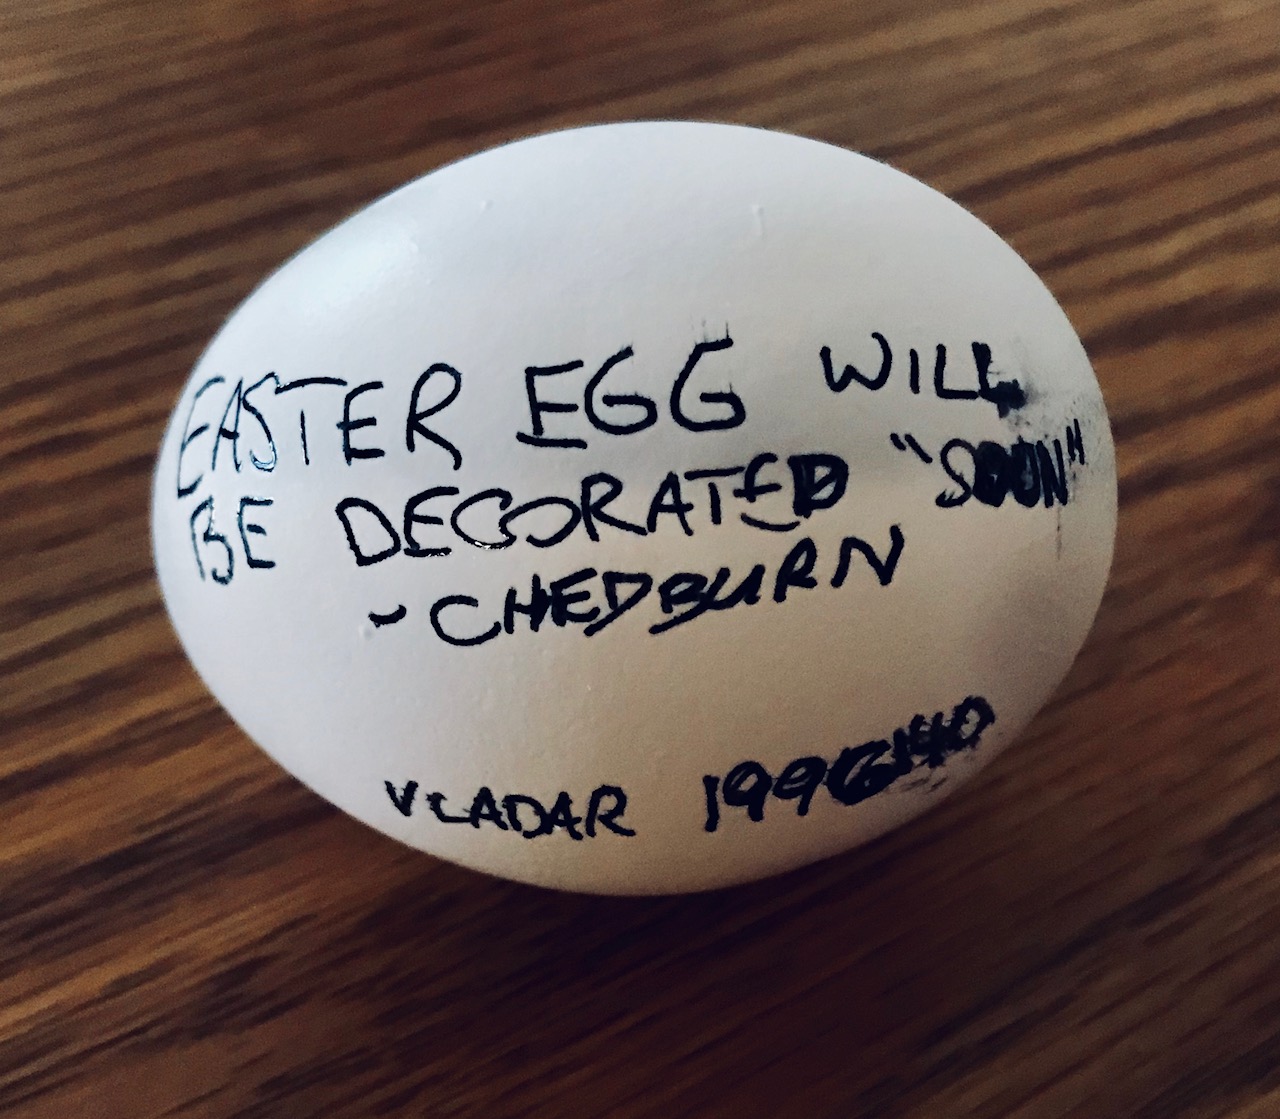 EASTER EGG WILL
BE DECORATED "SOON"
- CHEDBURN
VLADAR 1996140